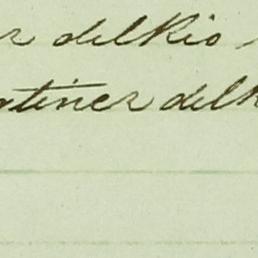 r delRio
rtinez delR